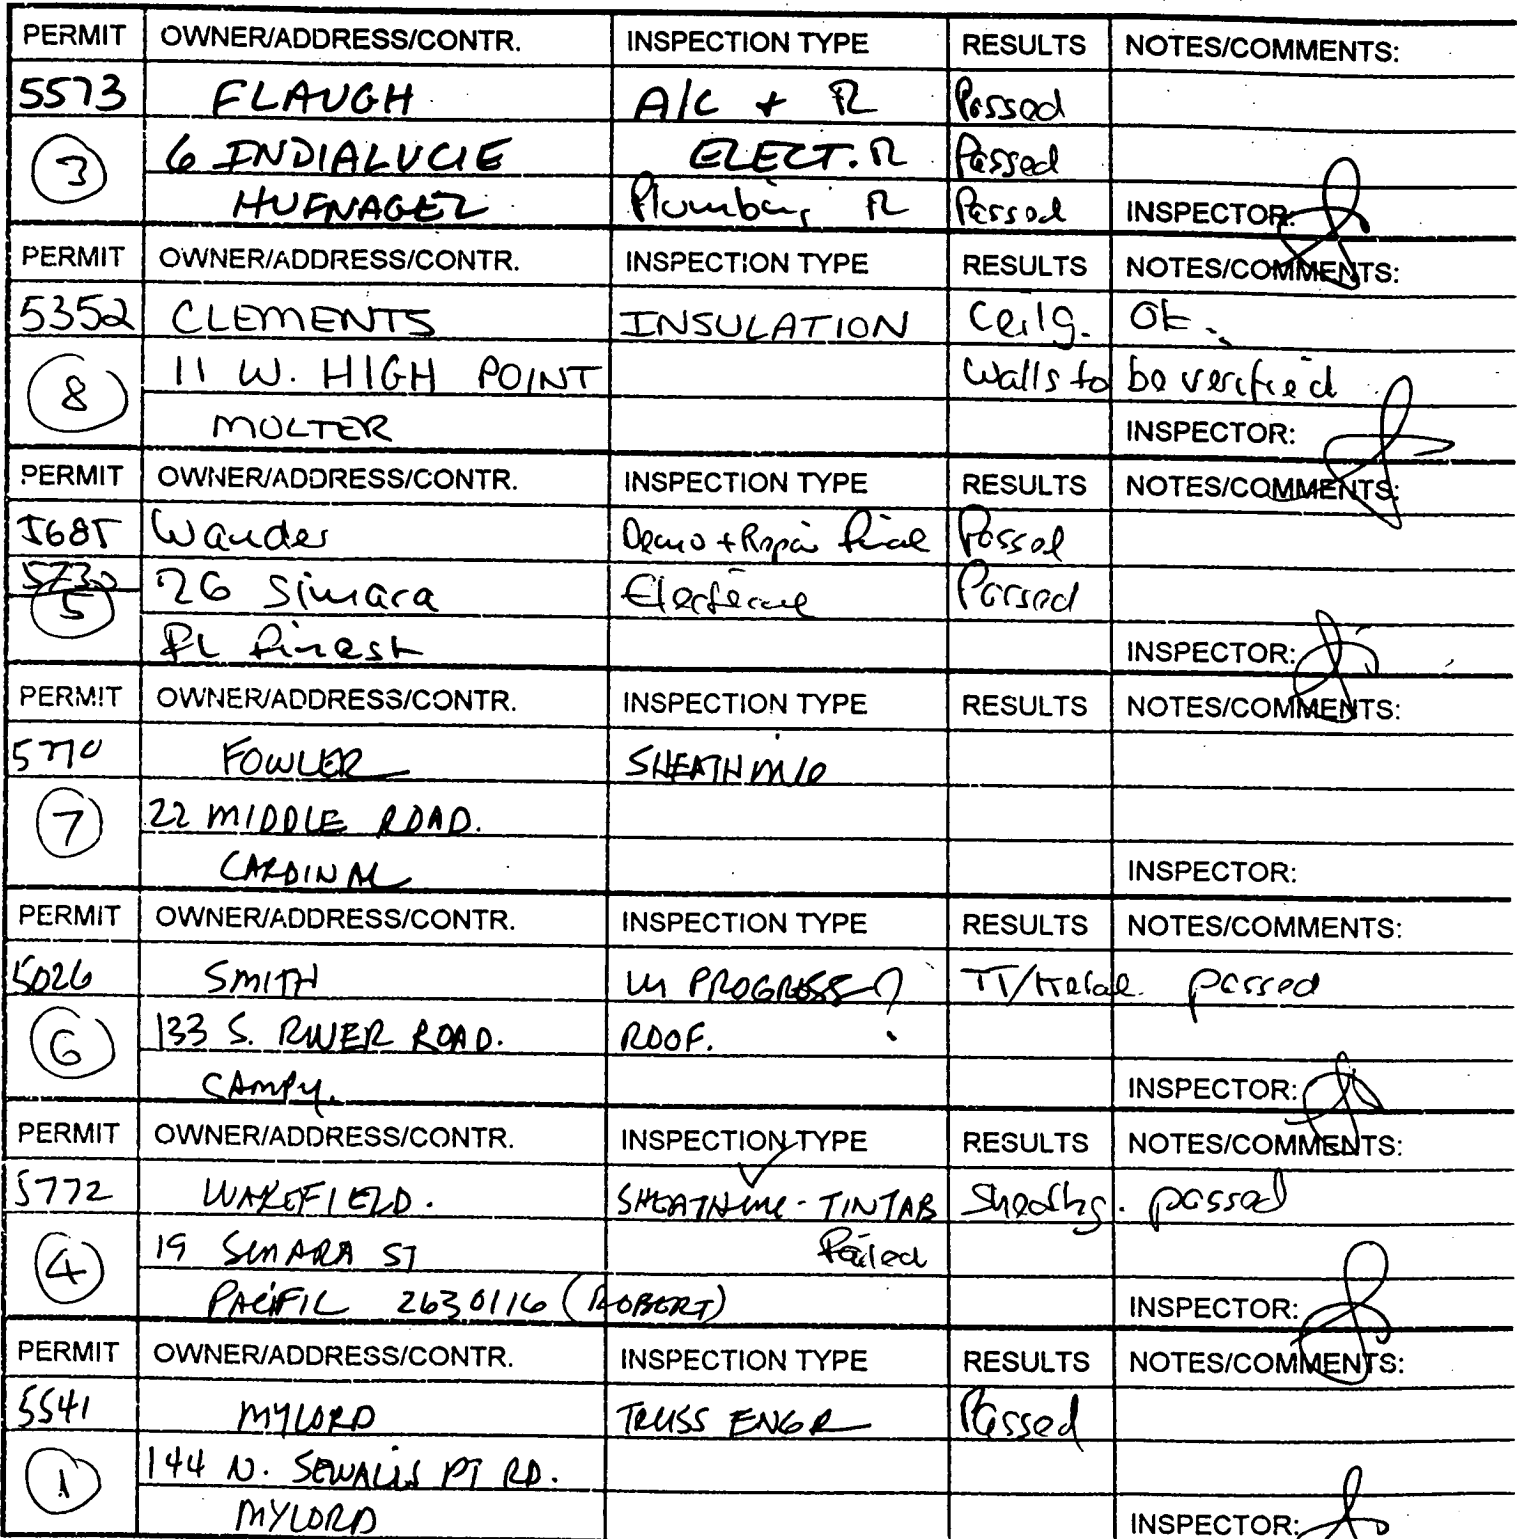 PERMIT OWNER/ADDRESS/CONTR. INSPECTION TYPE RESULTS NOTES/COMMENTS:
5573 FLAUGH A/C + R Passed
3 6 INDIALUCIE ELECT. R Passed
HUFNAGEL Plumbing R Passed INSPECTOR:
PERMIT OWNER/ADDRESS/CONTR. INSPECTION TYPE RESULTS NOTES/COMMENTS:
5352 CLEMENTS INSULATION Ceilg. OK.
8 11 W. HIGH POINT Walls to be verified
MOLTER INSPECTOR:
PERMIT OWNER/ADDRESS/CONTR. INSPECTION TYPE RESULTS NOTES/COMMENTS:
5685 Wauder Demo + Repair final Passed
5730 26 Simara Electrical Passed
5 FL Finest INSPECTOR:
PERMIT OWNER/ADDRESS/CONTR. INSPECTION TYPE RESULTS NOTES/COMMENTS:
5770 FOWLER SHEATHING
7 22 MIDDLE ROAD.
CARDINAL INSPECTOR:
PERMIT OWNER/ADDRESS/CONTR. INSPECTION TYPE RESULTS NOTES/COMMENTS:
5026 SMITH IN PROGRESS? TT/Metal passed
6 133 S. RIVER ROAD. ROOF.
INSPECTOR:
PERMIT OWNER/ADDRESS/CONTR. INSPECTION TYPE RESULTS NOTES/COMMENTS:
5772 WAKEFIELD. SHEATHING - TINTAB Sheathg. passed
4 19 SIMARA ST Failed
PACIFIC 2630116 (ROBERT) INSPECTOR:
PERMIT OWNER/ADDRESS/CONTR. INSPECTION TYPE RESULTS NOTES/COMMENTS:
5541 MYLORD TRUSS ENGR Passed
1 144 N. SEWALLS PT RD.
MYLORD INSPECTOR: